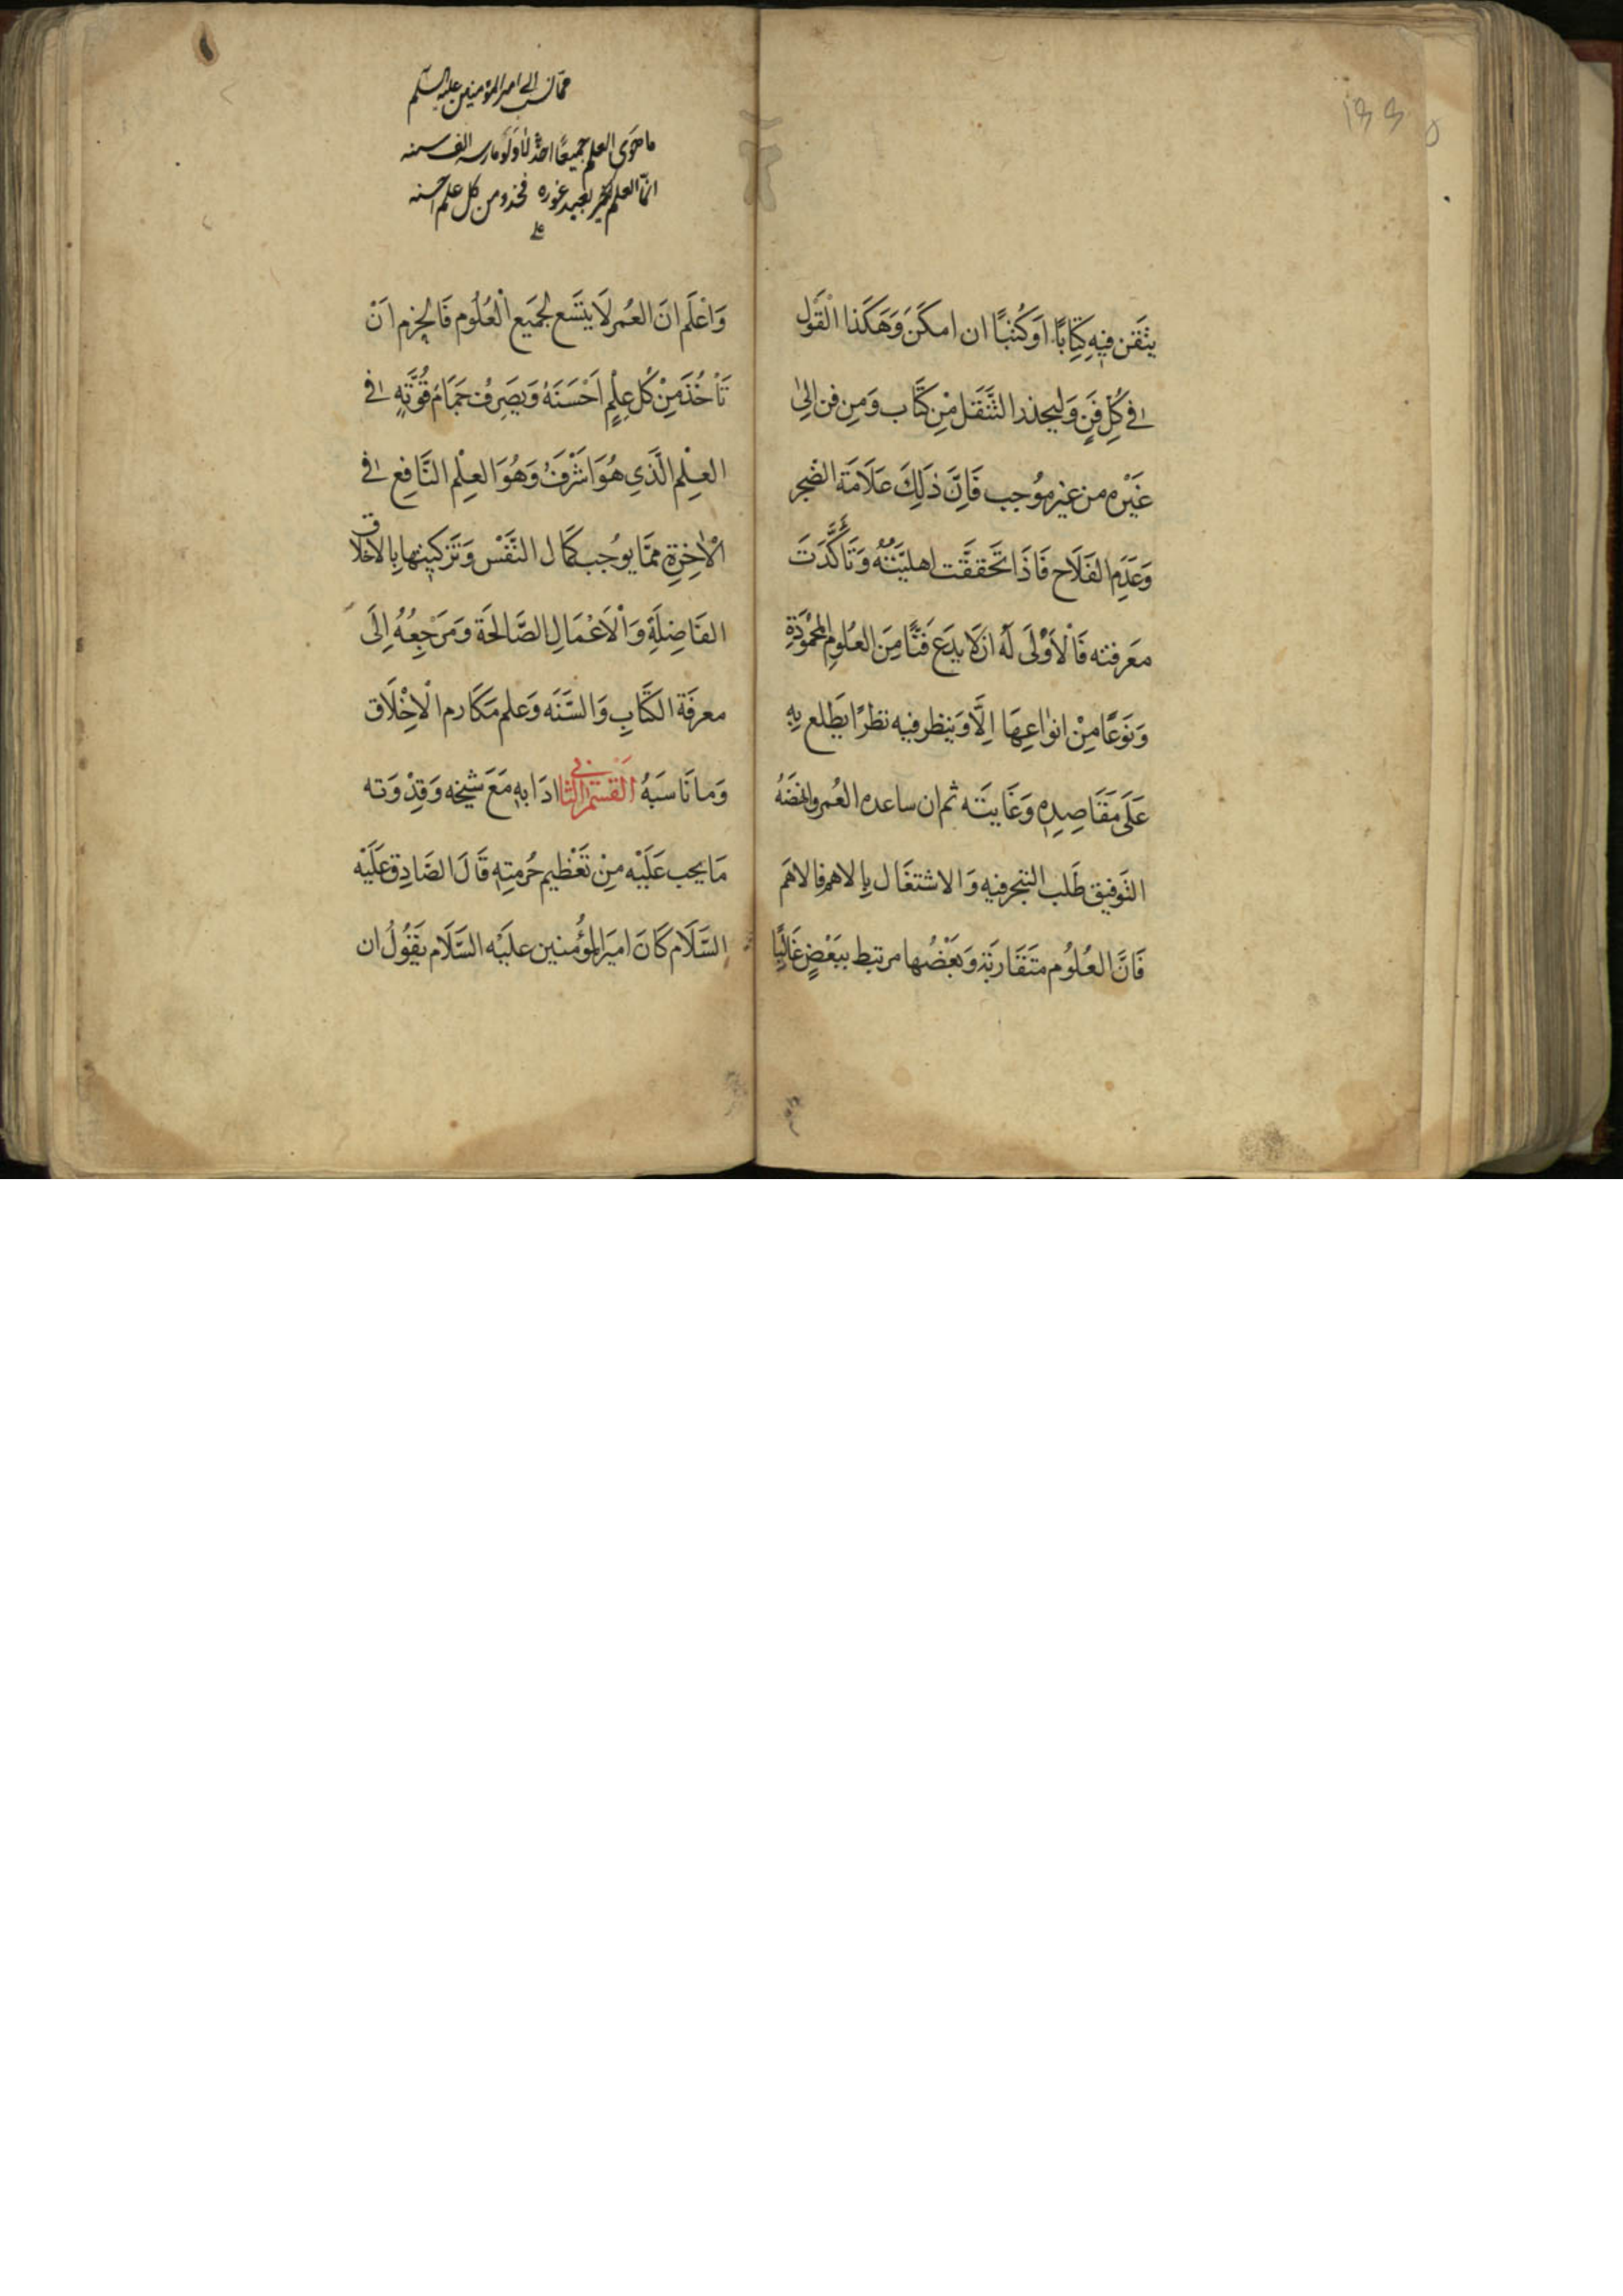 يتقن فيه كِتَابًا اَو كُتبًا ان امكَنَ وَهَكَذا الْقَوْل
فى كُلِ فَنٍ وَليحذر التَّنَقل مِنْ كتَاب وَمِن فن اِلىٰ
غَيْره من غير مُوجب فَاِنَّ ذٰلِكَ عَلَامَة الضجر
وَعَدَمِ الفَلَاح فَاذَا تحَققَّت اهليَّتُهُ وَتَأكَّدَتَ
مَعَرفته فَالْاَوْلَى لَهُ ان لَا يدَع فَنًّا مِنَ العلومِ المحْمُوْدَةِ
وَنَوعًا مِنْ انوٰاعِهَا اِلَّا وَيَنظر فيه نظرًا يَطَّلع بِهِ
عَلَى مَقَاصِدِهِ وَغَايَتَه ثم ان ساعده العُمر وانهضَهُ
التَوفيق طَلب التبحر فيه وَ الاشتغَال بِالاهم فالاهَم
فَانَّ العُلُوم متَقَاربَة وَبَعْضُها مرتبط ببَعْضٍ غَالبًا
ممّا نسب الى امير المؤمنين عليه السلم
ما حَوَى العلم جميعًا احدٌ لا ولَو مارسه الف سنه
انّما العلم بعيد غوره فخذوا من كل علم احسنه
وَاعْلَم انَ العُمر لَا يتَّسَع لجَمَيع الْعُلُوم فَالحزم اَنْ
تَأخُذَ مِنْ كُل عِلْمٍ اَحْسَنَهُ وَيَصَرِفُ جَمَامَ قُوَّتِهِ فى
العِلْم الَّذي هُوَ اشْرَفُ وَهُوَ العِلْم النَّافِع فى
الْاٰخِرَةِ ممَّا يوُجب كَمَال النَّفْس وَتَزكيتها بِالاخلاق
الفَاضِلَةِ وَالْاَعْمَالِ الصَّالحَة وَمَرَجِعُهُ اِلَى
معرفَة الكتَابِ وَالسَّنَه وَعلم مَكَارم الْاِخْلَاق
وَما نَاسَبَهُ اَلْقسْم الثانى ادَابه مَعَ شيخه وَقِدْوَته
مَا يجب عَلَيْه مِنْ تَعْظيم حُرمتِهِ قَالَ الصَّادِق عَلَيْه
السَّلَام كَانَ اميَر المؤُمنين عليَه السَّلَام يَقُولُ ان